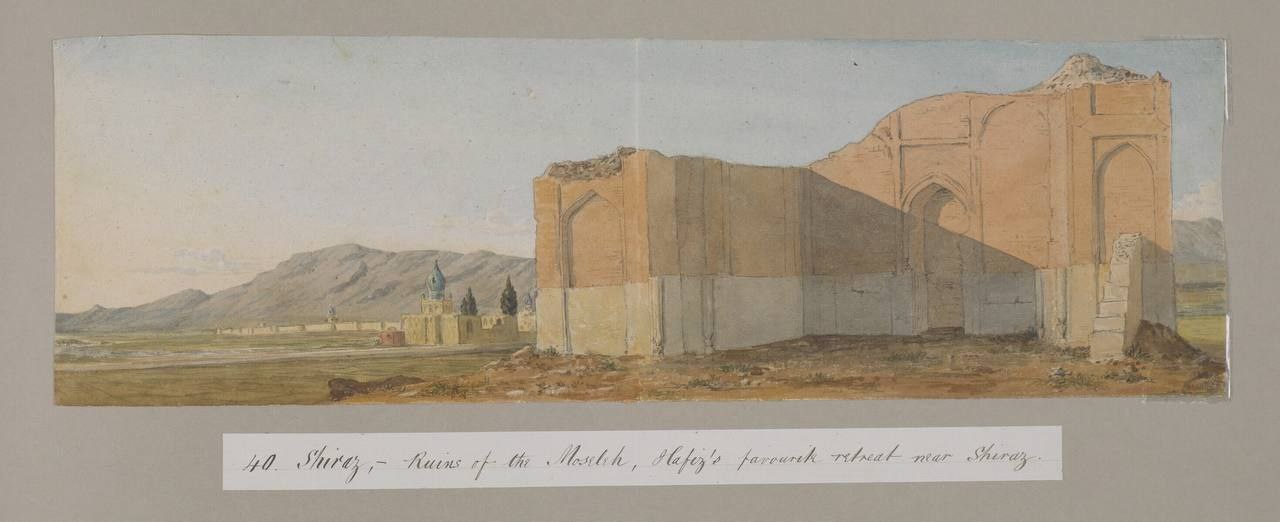 40. Shiraz, - Ruins of the Moseleh, Hafiz's favourite retreat near Shiraz.